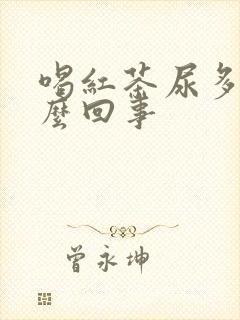 喝紅茶尿多
麼回事
曾永坤